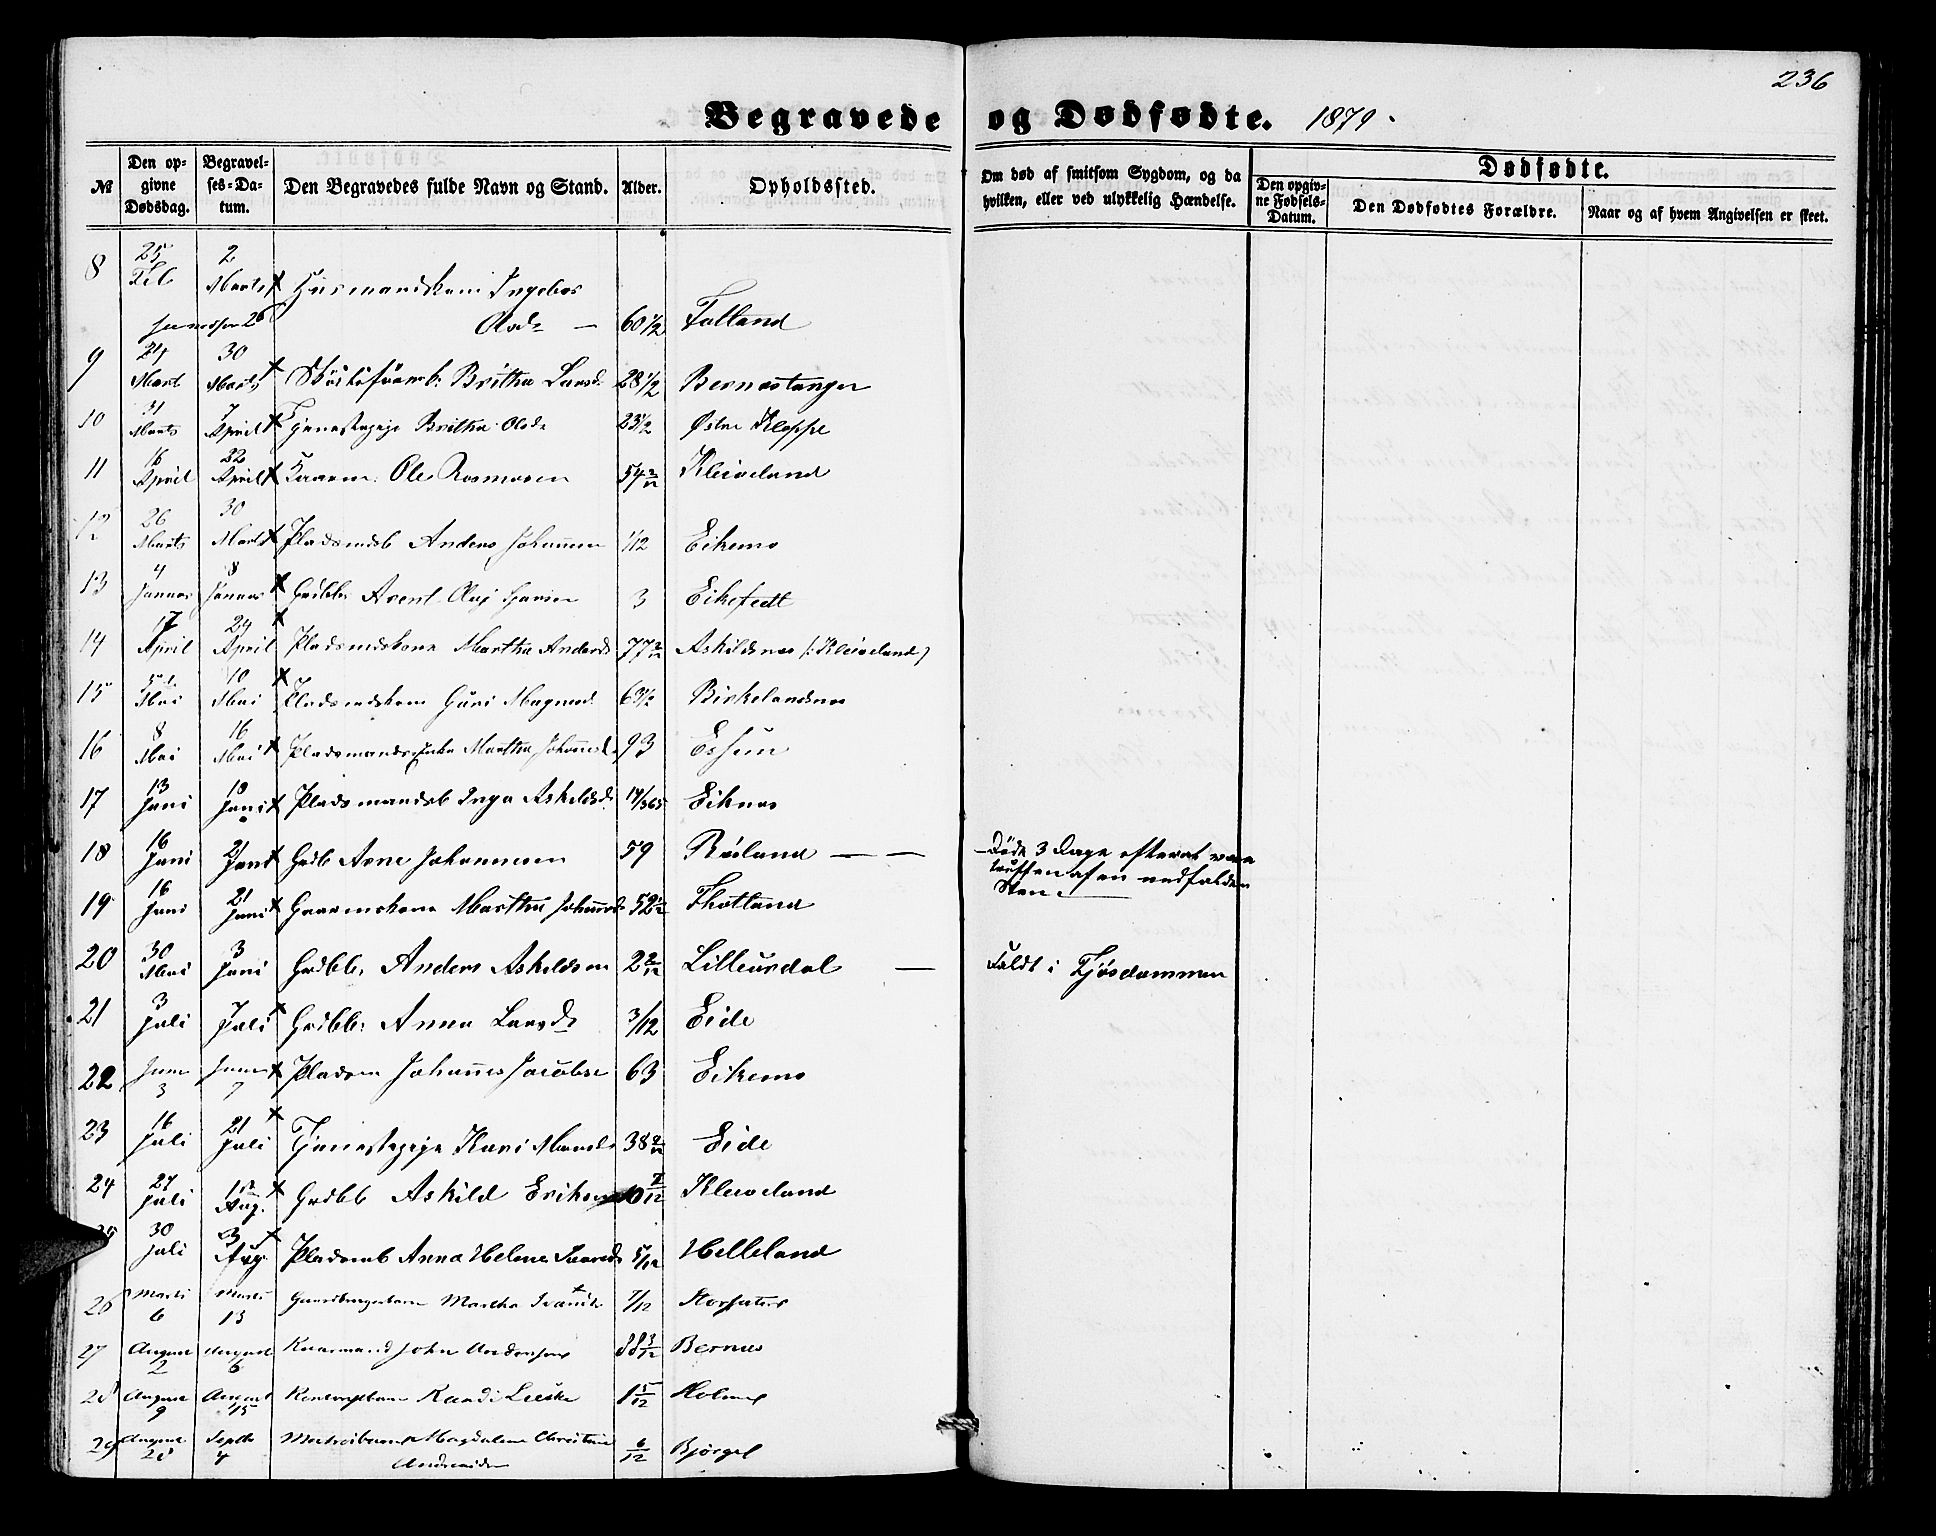 236
Begravede og Dødfødte. 1879.
№
Den opgivne Dødsdag.
Begravelses-Datum.
Den Begravedes fulde Navn og Stand.
Alder.
Opholdssted.
Om død af smitsom Sygdom, og da hvilken, eller ved ulykkelig Hændelse.
Dødfødte.
Den opgivne Fødsels-Datum.
Den Dødfødtes Forældre.
Naar og af hvem Angivelsen er skeet.
8 25 Feb 2 Marts Husmandskone Ingebor
Olsdr — 60 1/2 Falland
9 24 Mart 30 Marts Britha Larsd. 28 1/2 Bernestangen
10 31 Marts 7 April Tjenestepige Britha Olsdr 23 1/2 Østre Kleppe
11 16 April 22 April Ole Rasmusen 54 2/12 Kleiveland
12 26 Marts 30 Marts Pladsmdsb Anders Johannesen 1/12 Eikemo
13 4 Januar 8 Januar Grdbb. Arent Olaj 3 Eikefedt
14 17 April 24 April Pladsmdskone Martha Andersd 77 2/12 Askildsnes (:Kleiveland)
15 Mai 10 Mai Pladsmdskone Guri Magnesd. 63 1/2 Birkelandsnes
16 8 Mai 16 Mai Pladsmandsenke Martha Johannesd. 93
17 13 Juni 19 Juni Pladsmandsb Inga Askildsd. 14/365 Eiknes
18 16 Juni 21 Juni Grdb Arne Johannesen 59 Røiland — — Døde 3 Dage efterat være
truffen af en nedfalden
Sten.
19 16 Juni 21 Juni Gaarmskone Martha Johannesd 52 1/2 Thotland
20 30 Mai 3 Juni Grdbb. Anders Askildsen 2 2/12 Lilleurdal — Faldt i Tjøsdammen
21 3 Juli 7 Juli Grdbb. Anna Larsdr 3/12 Eide
22 Juni 3 Juni 7 Pladsm Johannes Jacobse 63 Eikemo
23 16 Juli 21 Juli Tjenestepige Kari Monsd. 38 2/12 Eide
24 27 Juli Aug. Grdbb Askild Eriksen 10 7/12 Kleiveland
30 Juli 23 Aug. Pladsmb Anna Helene Larsd 5/12 Helleland
26 Marts 6 Marts 13 Gaardbrugerbarn Martha 7/12
27 August 2 August 6 Kaarmand John Andersen 88 3/12 Bernes
28 August 9 August 15 Randi 1 5/12 Holmes
29 August 28 Septb 4 Magdalene Christine
6/12 Bjørgel